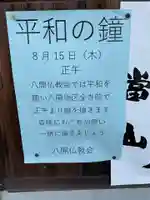 平和の鐘
8月15日（木）
正午
八開仏教会では平和を
願い八開地区全寺院で
正午より鐘を撞きます
皆様にもお力添い
一緒に撞きましょう
八開仏教会
當山